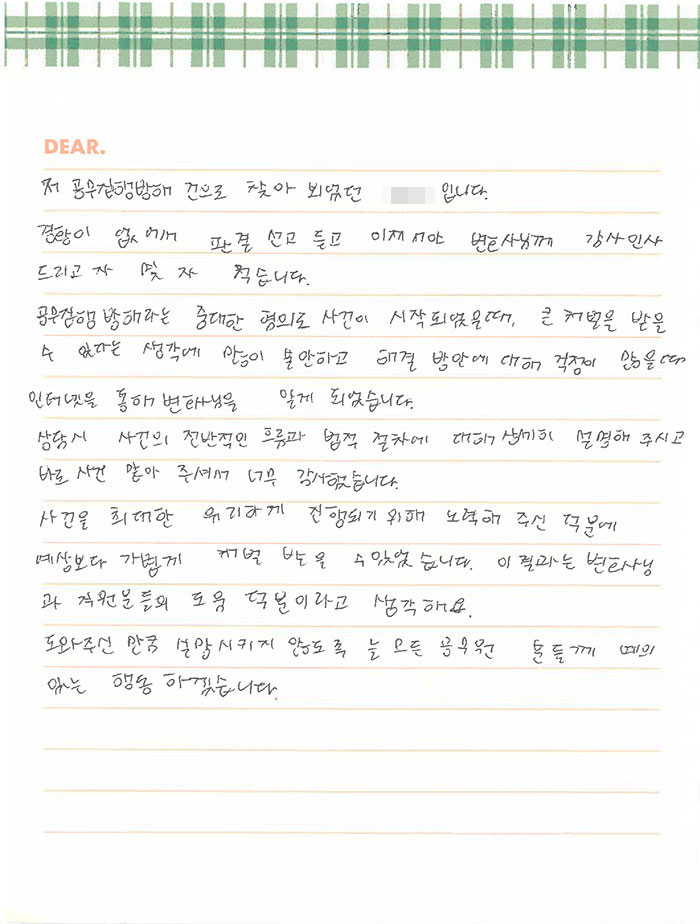 DEAR.
저 공무집행방해 건으로 찾아 뵈었던 입니다.
경황이 없어 판결 선고 듣고 이제서야 변호사님께 감사인사
드리고자 몇 자 적습니다.
공무집행방해라는 중대한 혐의로 사건이 시작되었을때, 큰 처벌을 받을
수 있다는 생각에 많이 불안하고 해결 방안에 대해 걱정이 많을때
인터넷을 통해 변호사님을 알게 되었습니다.
상담시 사건의 전반적인 흐름과 법적 절차에 대해 상세히 설명해 주시고
바로 사건 맡아 주셔서 너무 감사했습니다.
사건을 최대한 유리하게 진행되기 위해 노력해 주신 덕분에
예상보다 가볍게 처벌 받을 수 있었습니다. 이 결과는 변호사님
과 직원분들의 도움 덕분이라고 생각해요.
도와주신 만큼 실망시키지 않도록 늘 모든 공무원 분들께 예의
있는 행동 하겠습니다.